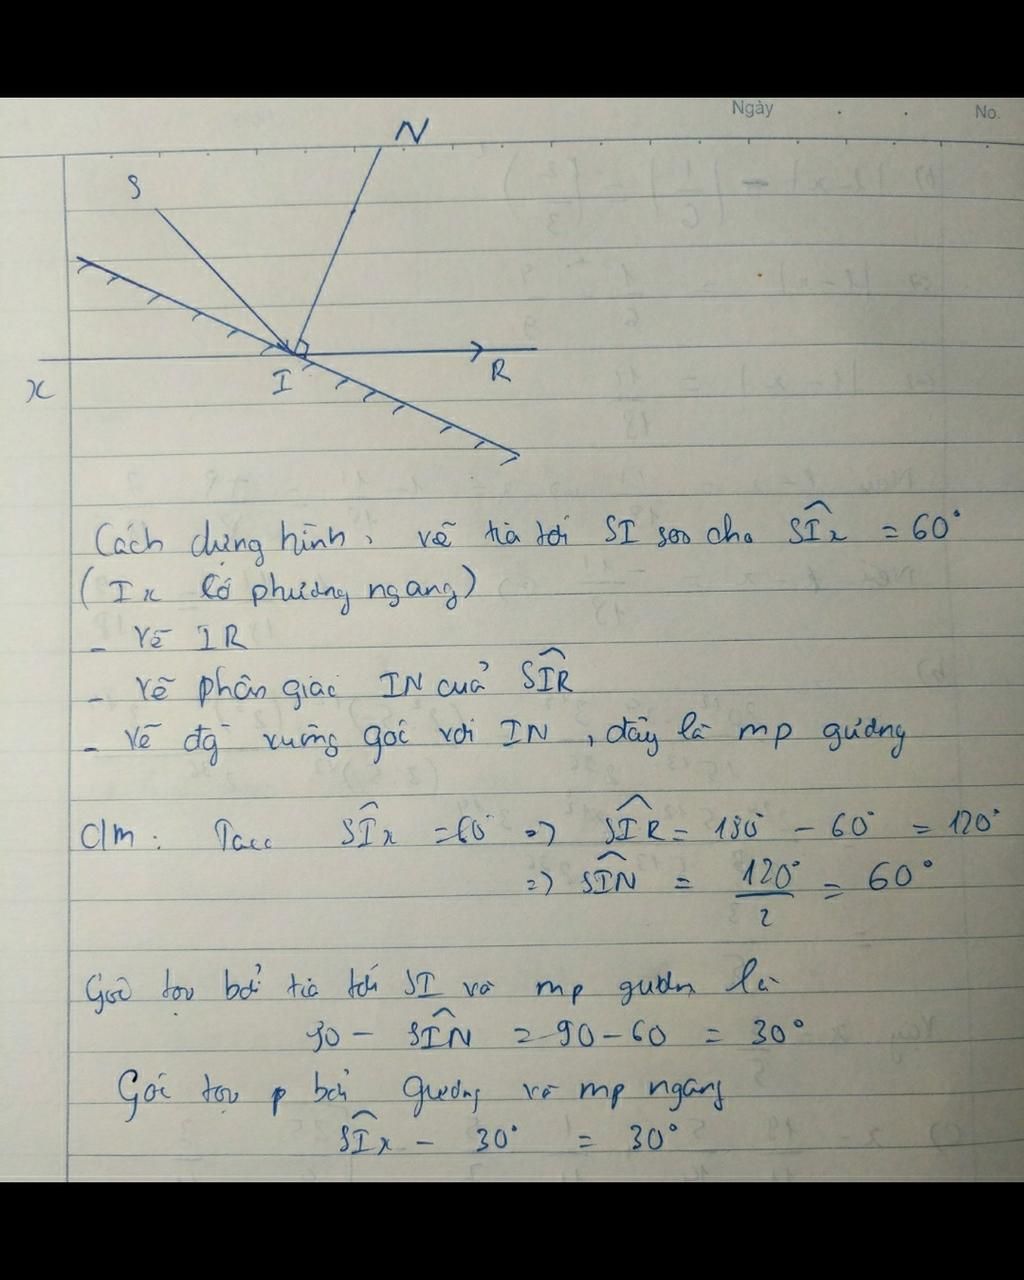 Ngày
No.
N
S
I
R
x
Cách dựng hình, vẽ tia tới SI sao cho SIx = 60°
(Ix có phương ngang)
- Vẽ IR
- Vẽ phân giác IN của SIR
- Vẽ đg vuông góc với IN, đây là mp gương
C/m: Ta có SIx = 60° => SIR = 180° - 60° = 120°
=> SIN = 120°/2 = 60°
Góc tạo bởi tia tới SI và mp gương là
90 - SIN = 90 - 60 = 30°
Góc tạo p bởi gương và mp ngang
SIx - 30° = 30°